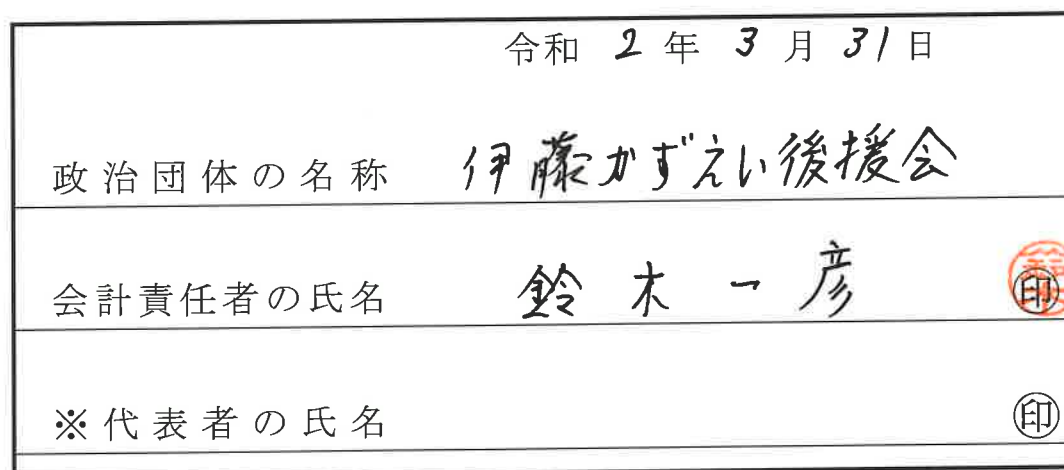 令和 2 年 3 月 31 日
政治団体の名称 伊藤かずえい後援会
会計責任者の氏名 鈴木一彦 ㊞
※代表者の氏名 ㊞